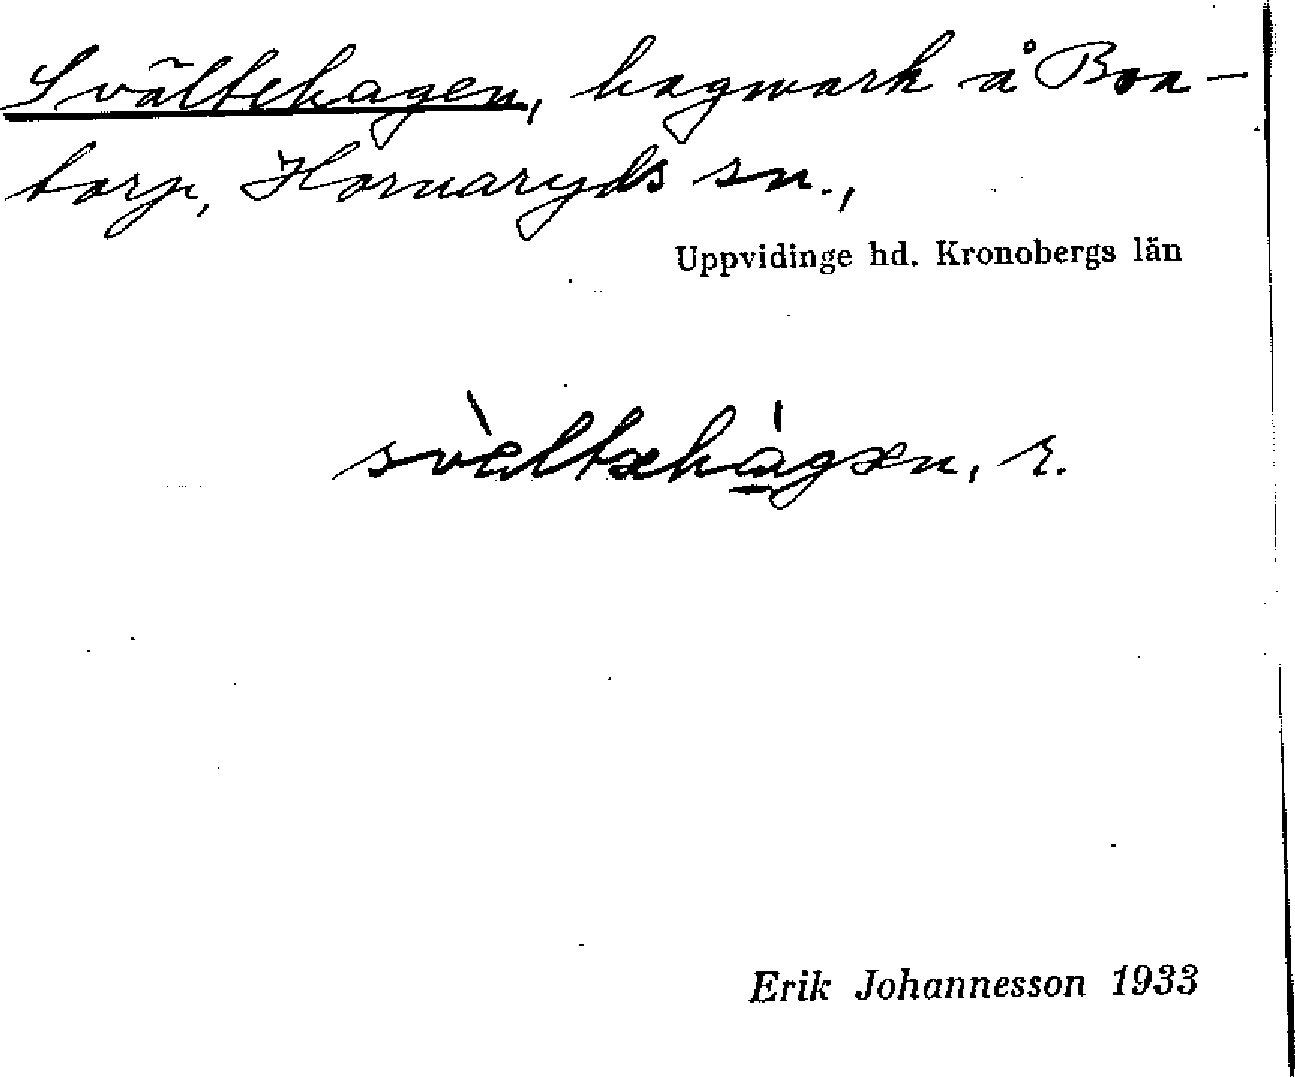 Svältehagen, hagmark å Boa-
torp, Hornaryds sn.,
Uppvidinge hd. Kronobergs län
svæ̀ltæhágæn, r.
Erik Johannesson 1933